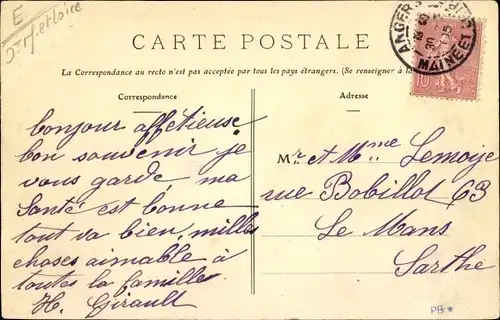 E
Met Loire
CARTE POSTALE
La Correspondance au recto n'est pas acceptée par tous les pays étrangers. (Se renseigner à la
Correspondance
Adresse
bonjour affétieuse
bon souvenir je
vous garde, ma
Santé est bonne
tout va bien, milles
choses aimable à
toutes la famille
H. Girault
Mr et Mme Lemoije
rue Bobillot 63
Le Mans
Sarthe
ANGERS
MAINE ET
10
PB*